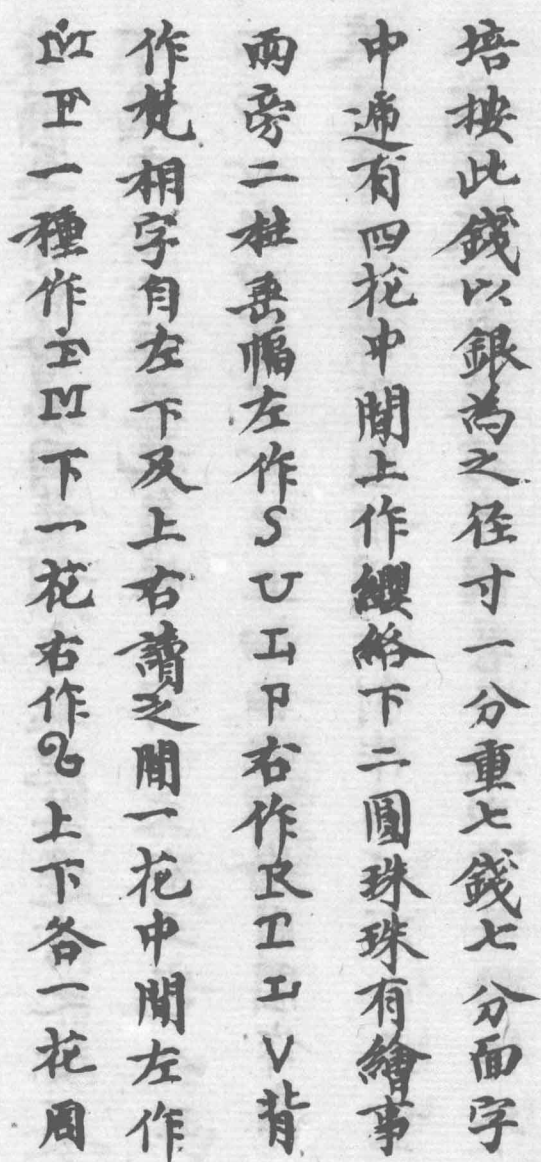 培按此錢以銀為之径寸一分重七錢七分面字
中遍有四花中間上作纓絡下二圓珠珠有繪事
兩旁二柱垂幅左作SUIP右作RIIV背
作梵相字自左下及上右讀之間一花中間左作
M F一種作F M下一花右作上下各一花周